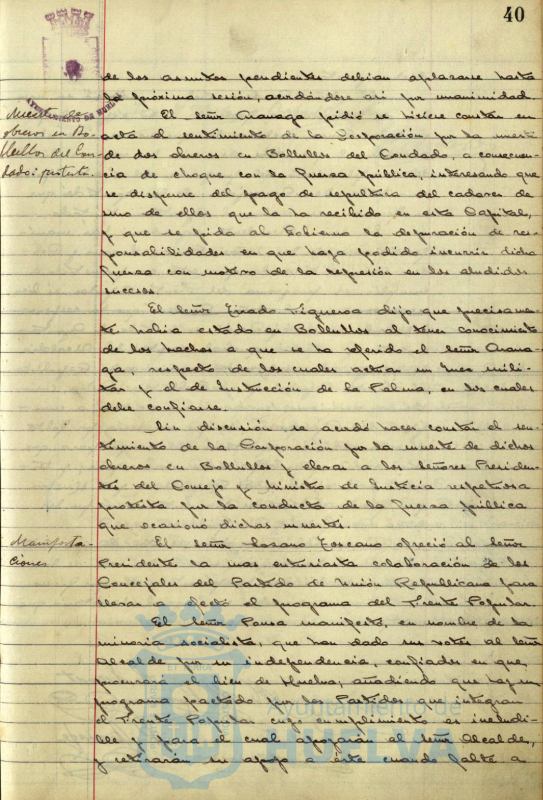 40
de los asuntos pendientes debian aplazarse hasta
la próxima sesión, acordándose asi por unanimidad.
Muerte de
obreros en Bo-
llullos del Con-
dado: protesta.
El Señor Aranaga pidió se hiciere constar en
acta el sentimiento de la Corporación por la muerte
de dos obreros en Bollullos del Condado, a consecuen-
cia de choque con la fuerza pública, interesando que
se dispense del pago de sepultura del cadaver de
uno de ellos que la ha recibido en esta Capital,
y que se pida al Gobierno la depuración de res-
ponsabilidades en que haya podido incurrir dicha
fuerza con motivo de la represión en los aludidos
sucesos.
El Señor Tirado Figueroa dijo que precisamen-
te habia estado en Bollullos al tener conocimiento
de los hechos a que se ha referido el Señor Arana-
ga, respecto de los cuales actúan un Juez mili-
tar y el de Instrucción de la Palma, en los cuales
debe confiarse.
Sin discusión, se acordó hacer constar el sen-
timiento de la Corporación por la muerte de dichos
obreros en Bollullos y elevar a los Señores Presiden-
tes del Consejo y Ministro de Justicia respetuosa
protesta por la conducta de la fuerza pública
que ocasionó dichas muertes.
Manifesta-
ciones
El Señor Lozano Toscano ofreció al Señor
Presidente la mas entusiasta colaboración de los
Concejales del Partido de Unión Republicana para
llevar a efecto el programa del Frente Popular.
El Señor Ponsa manifestó, en nombre de la
minoria socialista, que han dado sus votos al Señor
Alcalde por su independencia, confiados en que
procurará el bien de Huelva; añadiendo que hay un
programa pactado por los Partidos que integran
el Frente Popular cuyo cumplimiento es ineludi-
ble y para el cual apoyarán al Señor Alcalde,
y retirarán su apoyo a éste cuando falte a
Ayuntamiento de
HUELVA